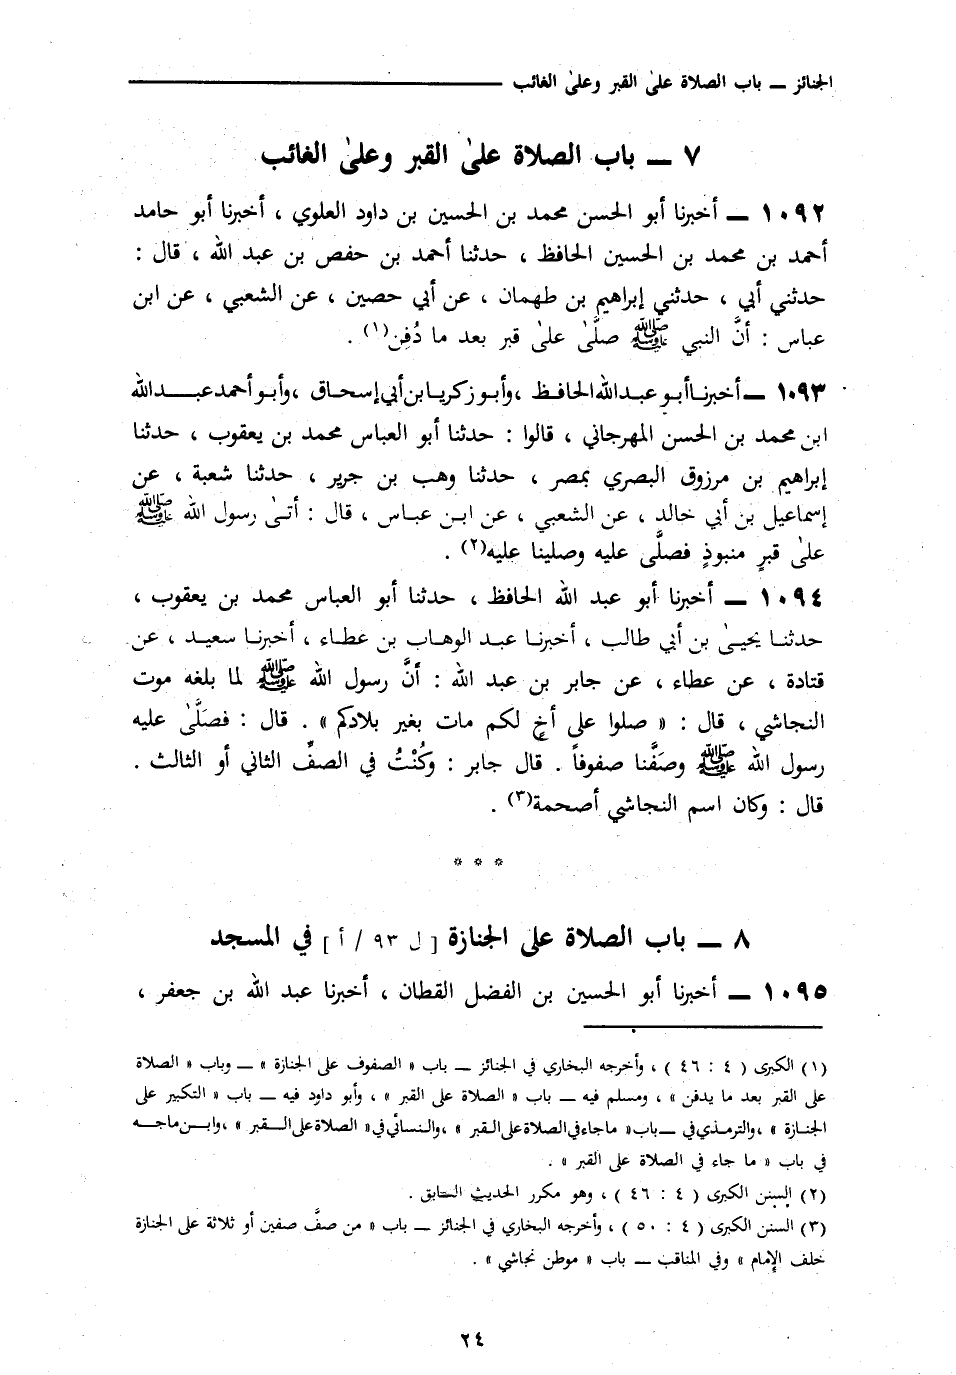 الجنائز ــ باب الصلاة على القبر وعلى الغائب
٧ ــ باب الصلاة على القبر وعلى الغائب
١٠٩٢ ــ أخبرنا أبو الحسن محمد بن الحسين بن داود العلوي ، أخبرنا أبو حامد
أحمد بن محمد بن الحسين الحافظ ، حدثنا أحمد بن حفص بن عبد الله ، قال :
حدثني أبي ، حدثني إبراهيم بن طهمان ، عن أبي حصين ، عن الشعبي ، عن ابن
عباس : أنَّ النبي ﷺ صلَّى على قبر بعد ما دُفِن(١) .
١٠٩٣ ــ أخبرنا أبو عبد الله الحافظ ، وأبو زكريا بن أبي إسحاق ، وأبو أحمد عبد الله
ابن محمد بن الحسن المهرجاني ، قالوا : حدثنا أبو العباس محمد بن يعقوب ، حدثنا
إبراهيم بن مرزوق البصري بمصر ، حدثنا وهب بن جرير ، حدثنا شعبة ، عن
إسماعيل بن أبي خالد ، عن الشعبي ، عن ابن عباس ، قال : أتى رسول الله ﷺ
على قبرٍ منبوذٍ فصلَّى عليه وصلينا عليه(٢) .
١٠٩٤ ــ أخبرنا أبو عبد الله الحافظ ، حدثنا أبو العباس محمد بن يعقوب ،
حدثنا يحيى بن أبي طالب ، أخبرنا عبد الوهاب بن عطاء ، أخبرنا سعيد ، عن
قتادة ، عن عطاء ، عن جابر بن عبد الله : أنَّ رسول الله ﷺ لما بلغه موت
النجاشي ، قال : « صلوا على أخٍ لكم مات بغير بلادكم » . قال : فصَلَّى عليه
رسول الله ﷺ وصَفَّنا صفوفاً . قال جابر : وكُنْتُ في الصفِّ الثاني أو الثالث .
قال : وكان اسم النجاشي أصحمة(٣) .
* * *
٨ ــ باب الصلاة على الجنازة [ ل ٩٣ / أ ] في المسجد
١٠٩٥ ــ أخبرنا أبو الحسين بن الفضل القطان ، أخبرنا عبد الله بن جعفر ،
(١) الكبرى ( ٤ : ٤٦ ) ، وأخرجه البخاري في الجنائز ــ باب « الصفوف على الجنازة » ــ وباب « الصلاة
على القبر بعد ما يدفن » ، ومسلم فيه ــ باب « الصلاة على القبر » ، وأبو داود فيه ــ باب « التكبير على
الجنازة » ، والترمذي في ــ باب « ما جاء في الصلاة على القبر » ، والنسائي في « الصلاة على القبر » ، وابن ماجه
في باب « ما جاء في الصلاة على القبر » .
(٢) السنن الكبرى ( ٤ : ٤٦ ) ، وهو مكرر الحديث السابق .
(٣) السنن الكبرى ( ٤ : ٥٠ ) ، وأخرجه البخاري في الجنائز ــ باب « من صفَّ صفين أو ثلاثة على الجنازة
خلف الإمام » وفي المناقب ــ باب « موطن نجاشي » .
٢٤